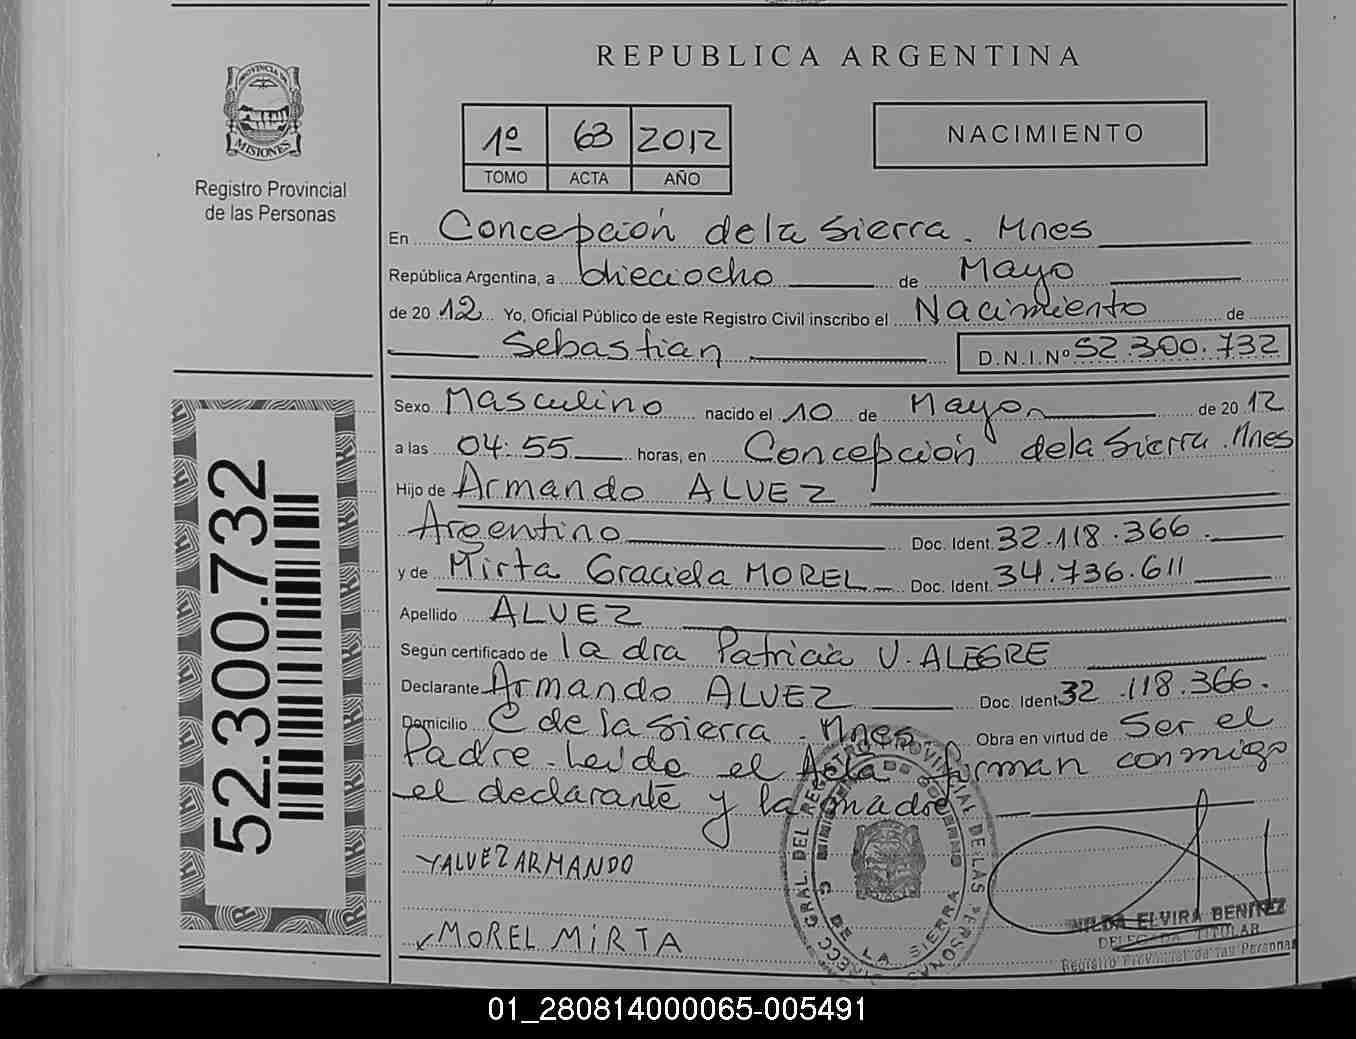 REPUBLICA ARGENTINA
PROVINCIA DE
MISIONES
Registro Provincial
de las Personas
1º 63 2012
TOMO ACTA AÑO
NACIMIENTO
En Concepción de la Sierra. Mnes
República Argentina, a dieciocho de Mayo
de 2012 Yo, Oficial Público de este Registro Civil inscribo el Nacimiento de
Sebastian D.N.I.Nº 52.300.732
Sexo Masculino nacido el 10 de Mayo de 2012
a las 04:55 horas, en Concepción de la Sierra. Mnes
Hijo de Armando ALVEZ
Argentino Doc. Ident. 32.118.366.
y de Mirta Graciela MOREL Doc. Ident. 34.736.611
Apellido ALVEZ
Según certificado de la dra Patricia V. ALEGRE
Declarante Armando ALVEZ Doc. Ident 32.118.366.
Domicilio C de la Sierra. Mnes Obra en virtud de Ser el
Padre. Leido el Acta firman conmigo
el declarante y la madre
52.300.732
ALVEZ ARMANDO
MOREL MiRTA
DIRECC. GRAL. DEL REGISTRO PROVINCIAL DE LAS PERSONAS
MINISTERIO DE GOBIERNO
C. DE LA SIERRA
HILDA ELVIRA BENITEZ
DELEGADA TITULAR
Registro Provincial de las Personas
01_280814000065-005491